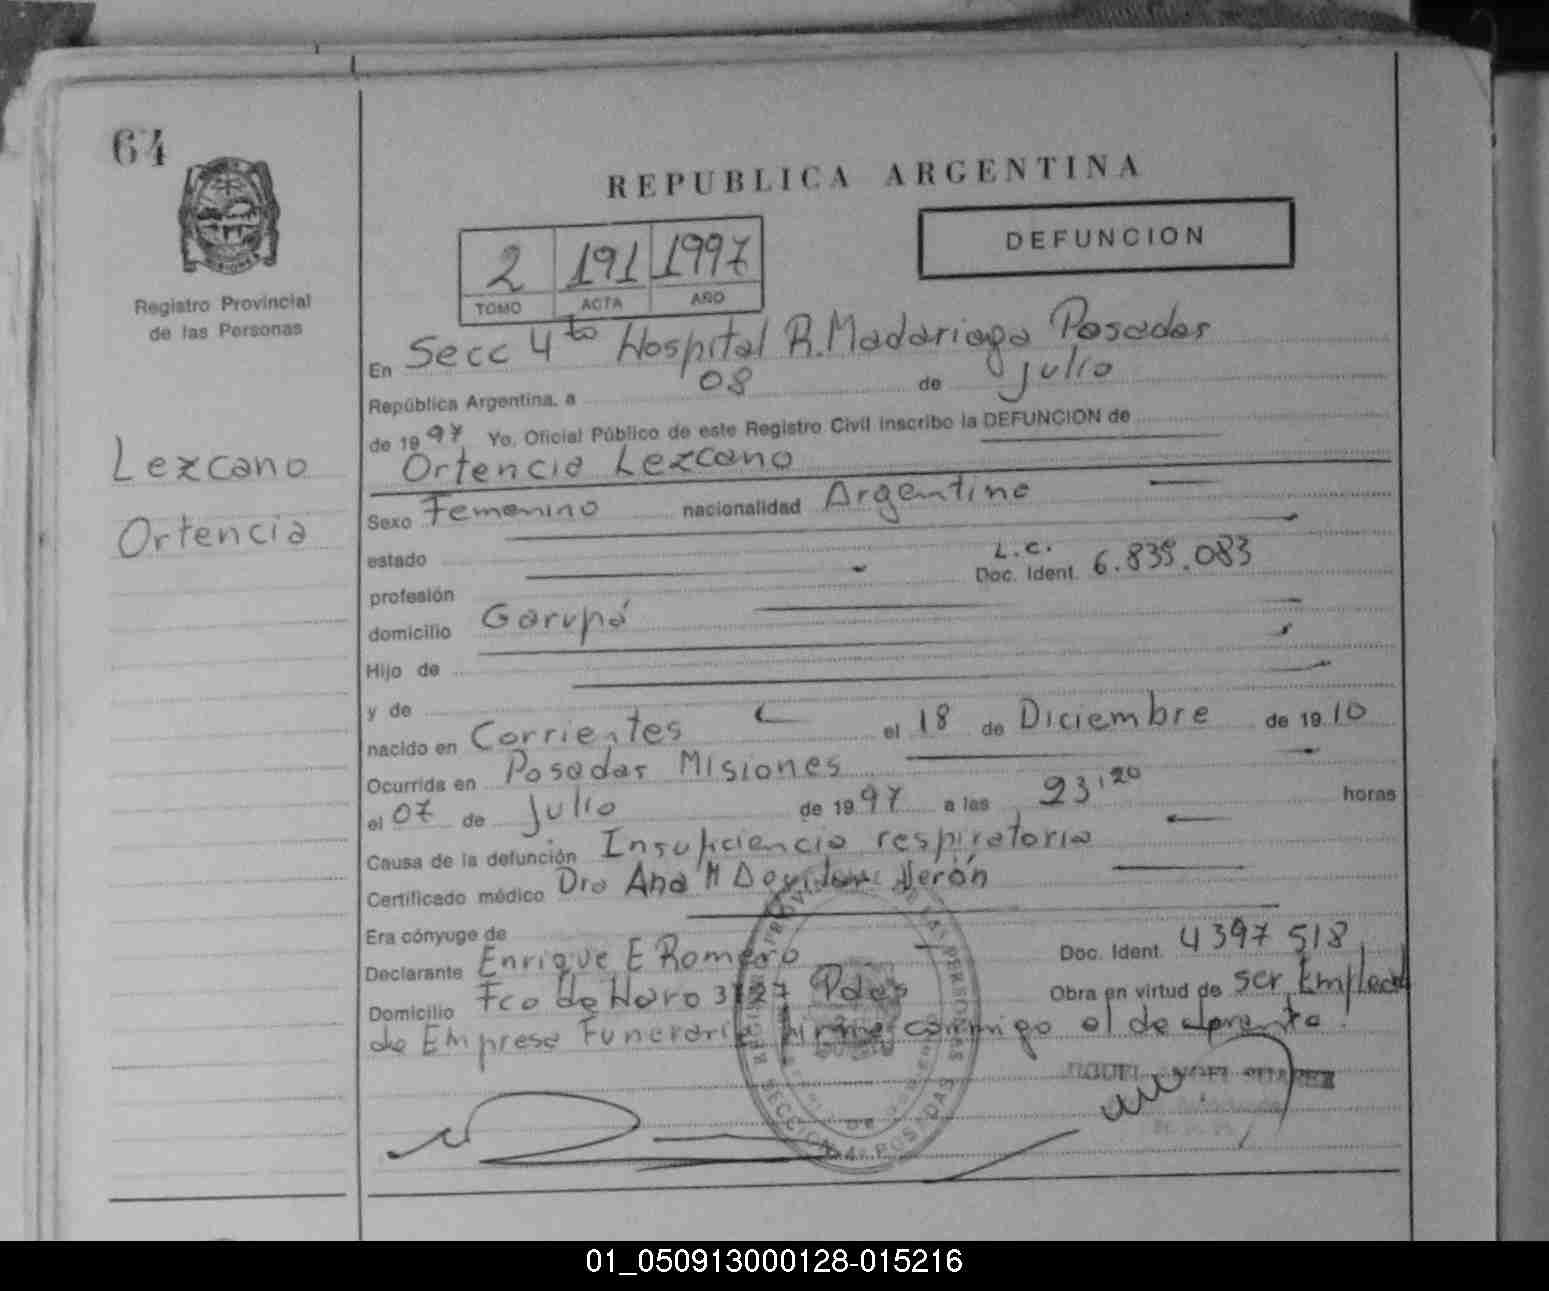 64
REPUBLICA ARGENTINA
DEFUNCION
2 191 1997
TOMO ACTA AÑO
Registro Provincial
de las Personas
En Secc 4to Hospital R. Madariaga Posadas
República Argentina, a 08 de julio
de 1997 Yo, Oficial Público de este Registro Civil inscribo la DEFUNCION de
Lezcano
Ortencia Lezcano
Ortencia
Sexo Femenino nacionalidad Argentina
estado
L.C.
profesión Doc. Ident. 6.835.083
domicilio Garupá
Hijo de
y de
nacido en Corrientes el 18 de Diciembre de 1910
Ocurrida en Posadas Misiones
el 07 de julio de 1997 a las 23,20 horas
Causa de la defunción Insuficiencia respiratoria
Certificado médico Dra Ana M Nerón
Era cónyuge de
Declarante Enrique E Romero Doc. Ident. 4397518
Domicilio Fco de Haro Pdas Obra en virtud de ser Emplead
de Empresa Funeraria conmigo el
SECCION 4ª POSADAS
01_050913000128-015216